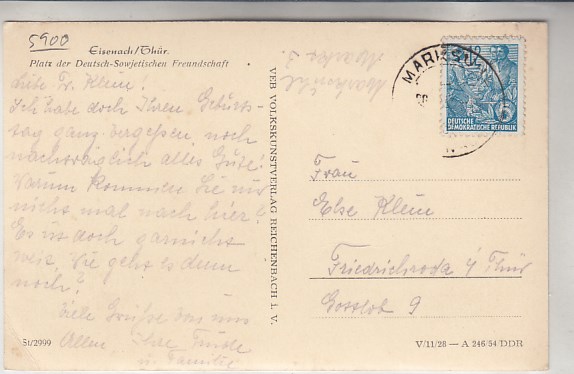 5900
Eisenach/Thür.
Platz der Deutsch-Sowjetischen Freundschaft
Liebe Fr. Klein!
Ich habe doch Ihren Geburts-
tag ganz vergessen, noch
nachträglich alles Gute!
Warum kommen Sie nur
nicht mal nach hier?
Es ist doch garnicht
weit. Wie geht es denn
noch?
Viele Grüße von uns
Allen Ihre
u. Familie
St/2999
VEB VOLKSKUNSTVERLAG REICHENBACH I. V.
MARKSU
10
DEUTSCHE
DEMOKRATISCHE REPUBLIK
Frau
Else Klein
Friedrichroda i/ Thür
Gosslob 9
V/11/28 — A 246/54 DDR